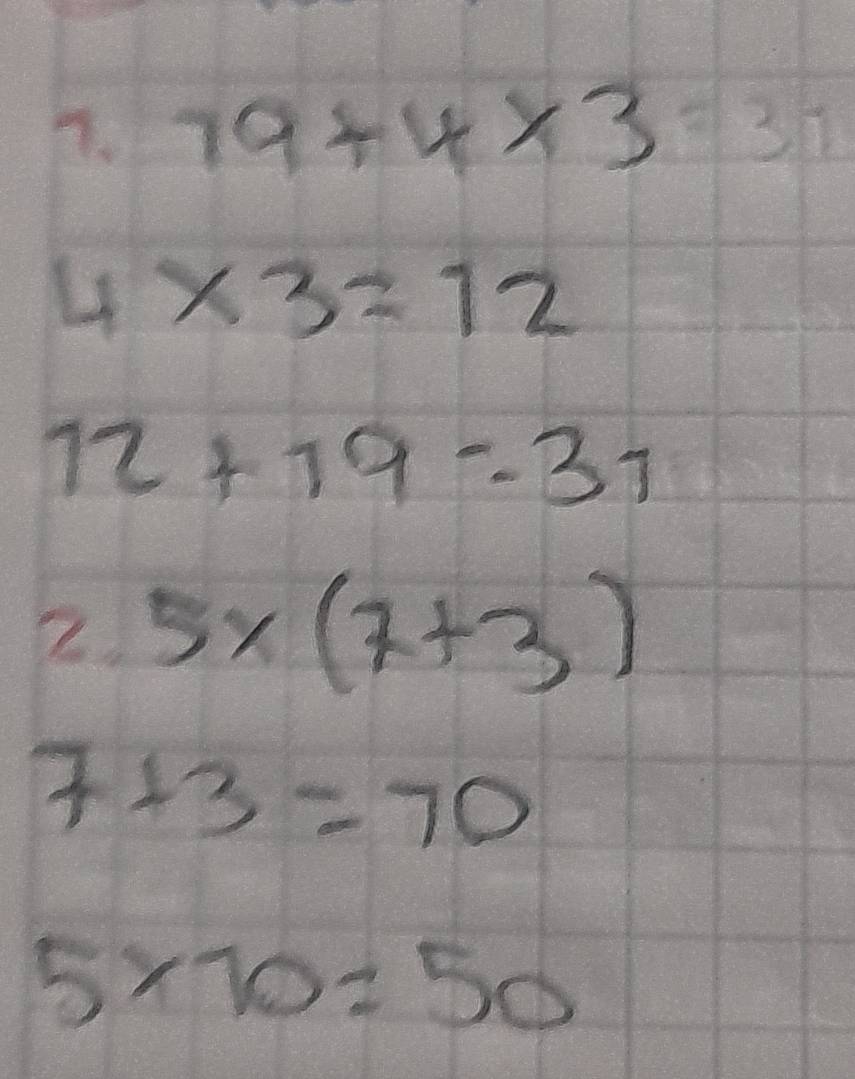 1. 19+4×3=31
4×3=12
12+19=31
2. 5×(7+3)
7+3=10
5×10=50